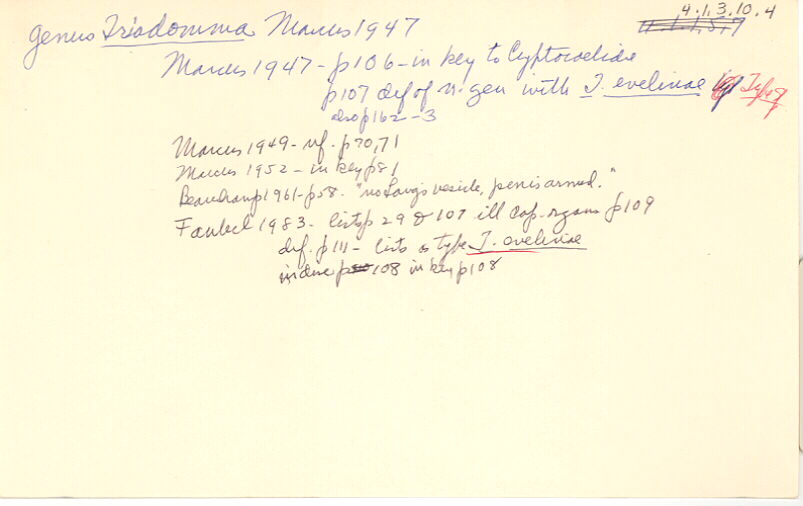 4.1.3.10.4
genus Triadomma Marcus 1947
Marcus 1947 - p106 - in key to Cryptocelidae
p107 def of n. gen with T. evelinae Type
also p162-3
Marcus 1949 - rf. p70,71
Marcus 1952 - in key p81
Beauchamp 1961 - p58. "no Lang's vesicle, penis armed."
Faubel 1983 - lists p 29 & 107 ill cop. organs p109
def. p111 - lists as type T. evelinae
in disc p 108 in key p108